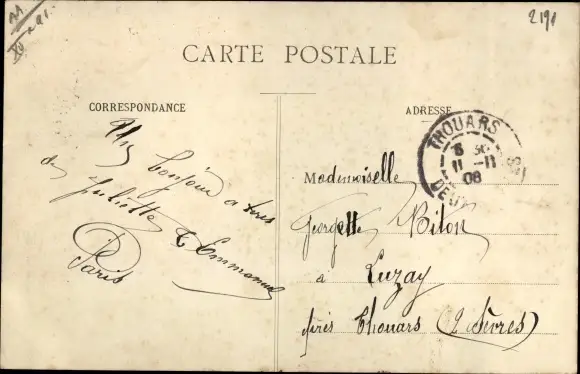 2191
CARTE POSTALE
CORRESPONDANCE
ADRESSE
Un bonjour a tous
de Juliette & Emmanuel
Paris
THOUARS
11 -11
08
DEUX
Mademoiselle
Georgette Biton
a Luzay
près Thouars (2 Sèvres)